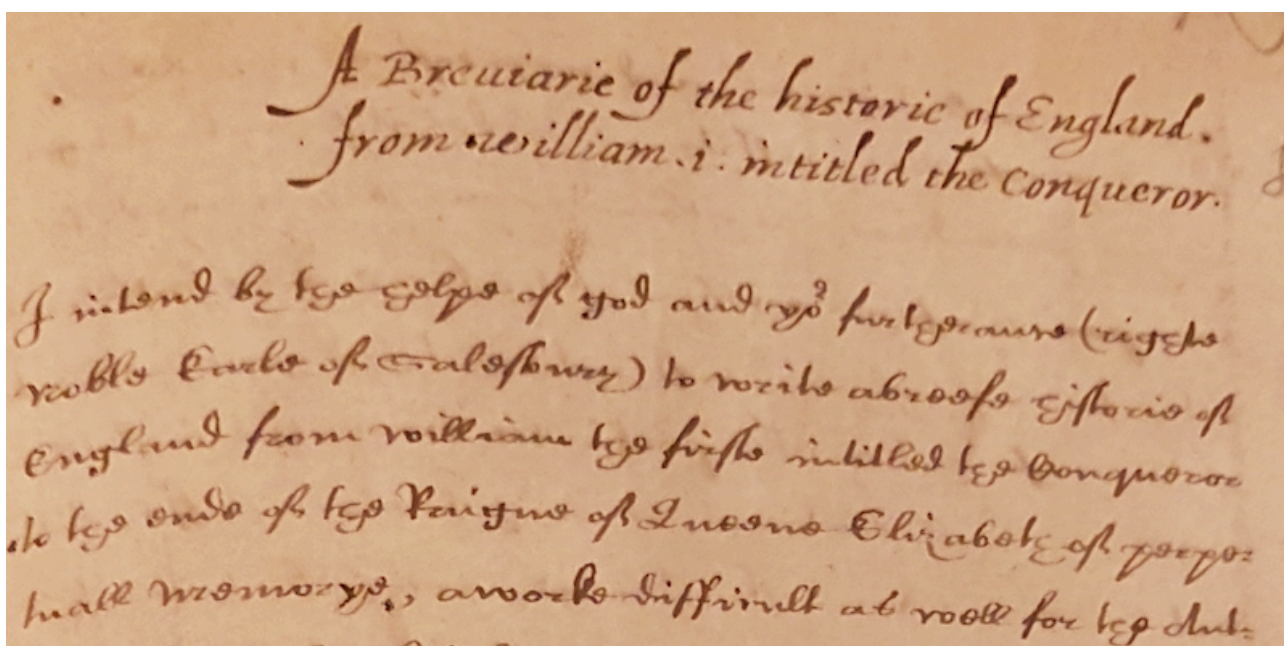 A Breuiarie of the historie of England.
from william .i. intitled the Conqueror.
I intend by the helpe of god and yor furtherance (righte
noble Earle of Salesbury) to write abreefe historie of
England from william the firste intitled the Conqueror
to the ende of the Raigne of Queene Elizabeth of perpe=
tuall memorye, aworke difficult as well for the